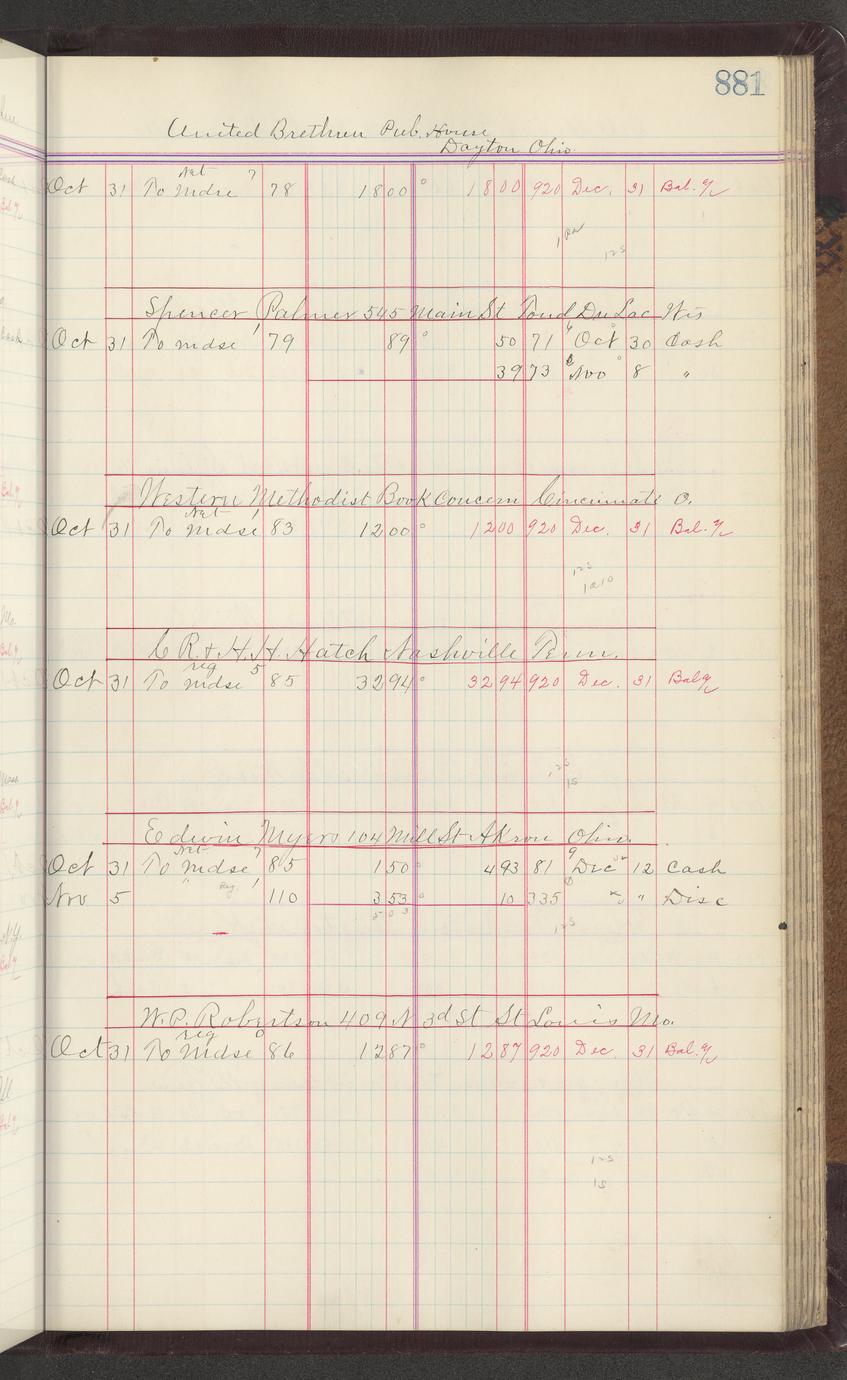 881
United Brethren Pub. House
Dayton Ohio
Net 7
Oct 31 To Mdse 78 18 00 18 00 920 Dec. 31 Bal. %
125
Spencer Palmer 545 Main St Fond Du Lac Wis
Oct 31 To Mdse 1 79 89 50 71 Oct 30 Cash
39 73 Nov 8 "
Western Methodist Book Concern Cincinnati O.
Net 1
Oct 31 To Mdse 83 12 00 12 00 920 Dec. 31 Bal. %
125
1210
C R. & H. H. Hatch Nashville Tenn.
reg 5
Oct 31 To Mdse 85 32 94 32 94 920 Dec. 31 Bal %
125
15
Edwin Myers 104 Mill St Akron Ohio.
Net 7
Oct 31 To Mdse 85 1 50 4 93 81 Dec 12 Cash
Nov 5 " Reg. 1 110 3 53 10 335 " Disc
5 03
125
W. P. Robertson 409 N 3d St St Louis Mo.
reg 0
Oct 31 To Mdse 86 12 87 12 87 920 Dec. 31 Bal. %
125
15